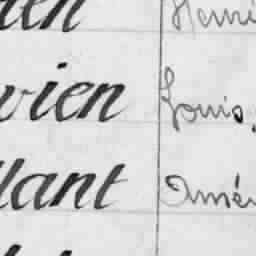 ien Henri
vien Louis,
llant Amé